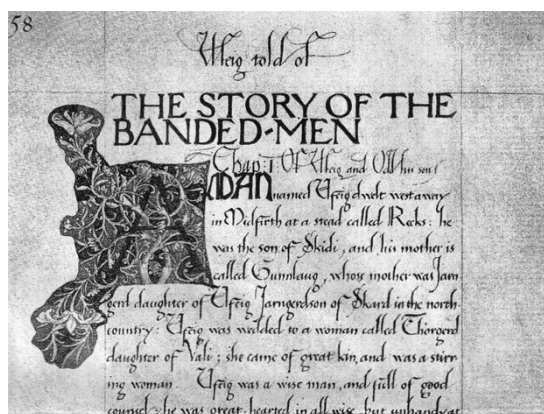 58
Ufeig told of
THE STORY OF THE
BANDED-MEN
Chap: I: Of Ufeig and Odd his son
A MAN
named Ufeig dwelt west away
in Midfirth at a stead called Reeks: he
was the son of Skidi, and his mother is
called Gunnlaug, whose mother was Jarn
gerd daughter of Ufeig Jarngerdson of Skard in the north-
country: Ufeig was wedded to a woman called Thorgerd
daughter of Vali; she came of great kin, and was a stirr-
ing woman. Ufeig was a wise man, and full of good
counsel: he was great-hearted in all wise, but unhandy at